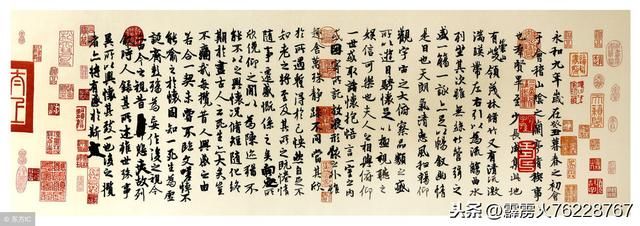 永和九年歲在癸丑暮春之初會
于會稽山陰之蘭亭脩稧事
也群賢畢至少長咸集此地
有崇山峻領茂林脩竹又有清流激
湍暎帶左右引以為流觴曲水
列坐其次雖無絲竹管弦之
盛一觴一詠亦足以暢敘幽情
是日也天朗氣清惠風和暢仰
觀宇宙之大俯察品類之盛
所以遊目騁懷足以極視聽之
娛信可樂也夫人之相與俯仰
一世或取諸懷抱悟言一室之內
或因寄所託放浪形骸之外雖
趣舍萬殊靜躁不同當其欣
於所遇暫得於己怏然自足不
知老之將至及其所之既惓情
隨事遷感慨係之矣向之所
欣俛仰之閒以為陳迹猶不
能不以之興懷況脩短隨化終
期於盡古人云死生亦大矣豈
不痛哉每攬昔人興感之由
若合一契未嘗不臨文嗟悼不
能喻之於懷固知一死生為虛
誕齊彭殤為妄作後之視今
亦由今之視昔悲夫故列
敘時人錄其所述雖世殊事
異所以興懷其致一也後之攬
者亦將有感於斯
东方IC
头条@霹雳火76228767